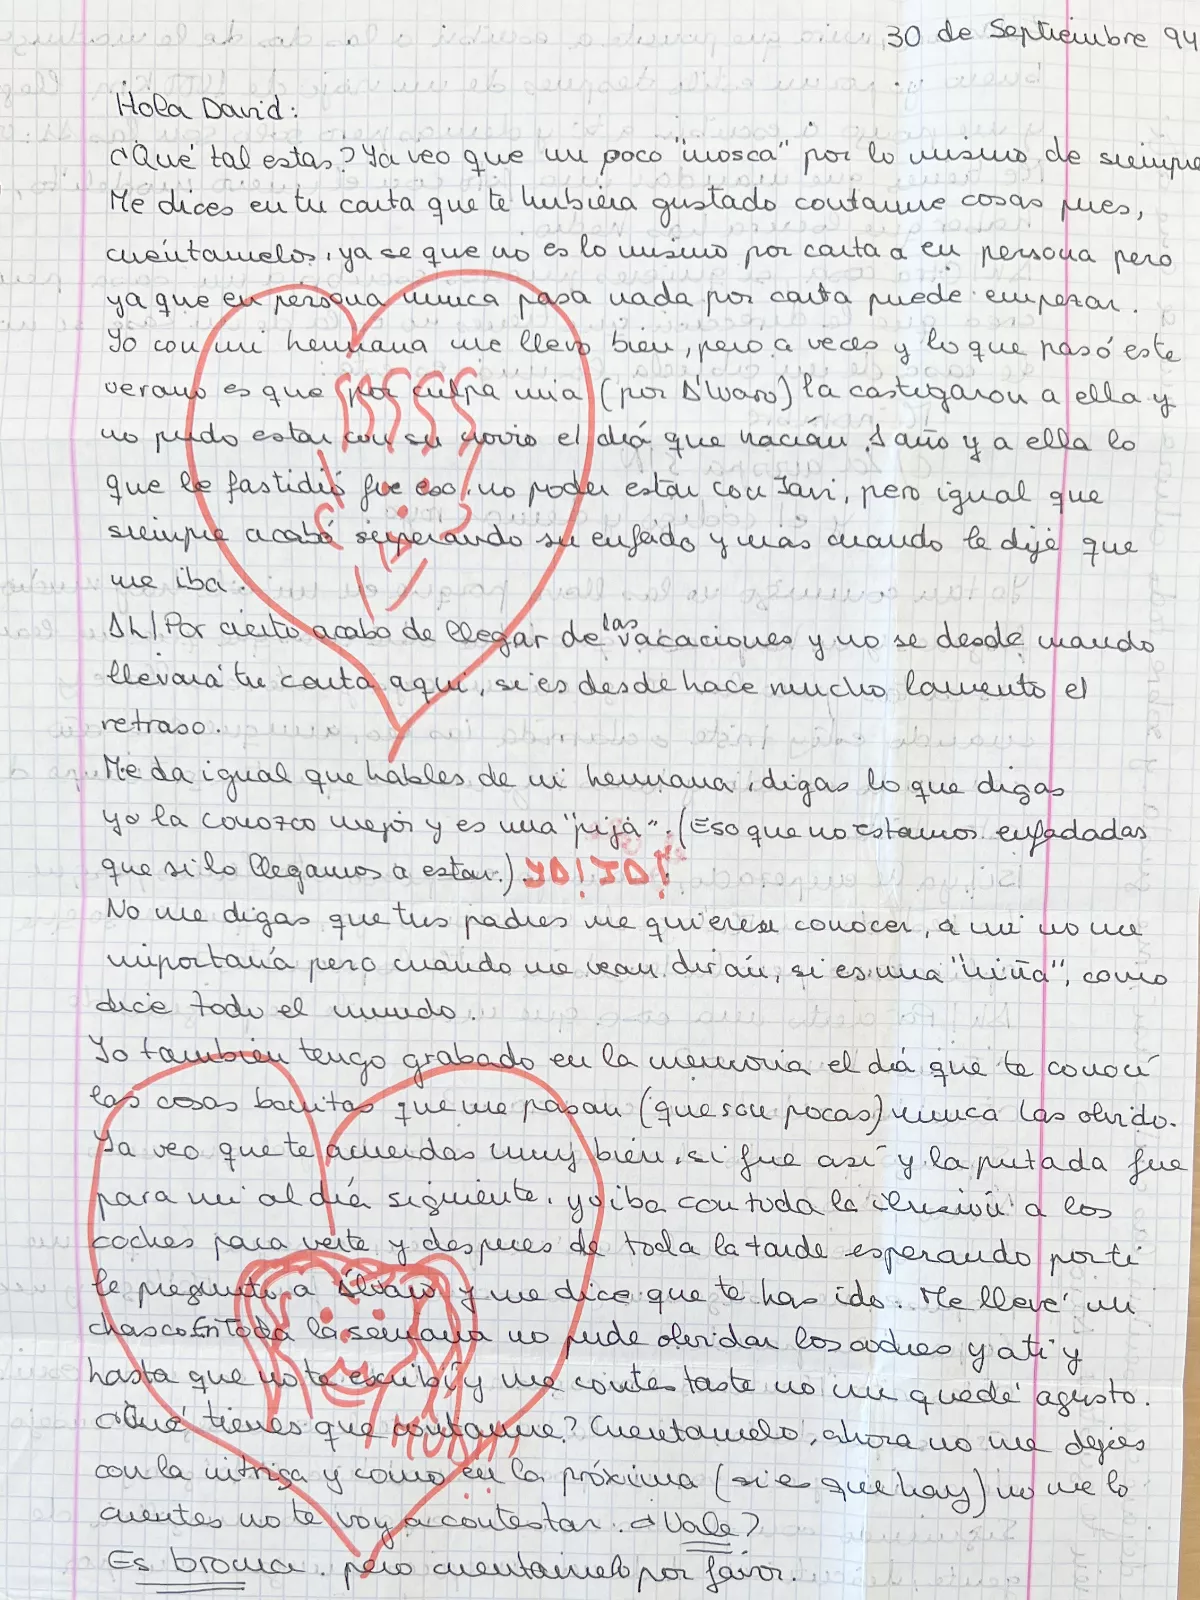 30 de Septiembre 94
Hola David:
¿Qué tal estas? Ya veo que un poco "mosca" por lo mismo de siempre
Me dices en tu carta que te hubiera gustado contarme cosas pues,
cuéntamelos, ya se que no es lo mismo por carta a en persona pero
ya que en persona nunca pasa nada por carta puede empezar.
Yo con mi hermana me llevo bien, pero a veces y lo que pasó este
verano es que por culpa mia (por Álvaro) la castigaron a ella y
no pudo estar con su novio el diá que hacián 1 año y a ella lo
que le fastidió fue eso, no poder estar con Javi, pero igual que
siempre acabó superando su enfado y más cuando le dije que
me iba.
Ah! Por cierto acabo de llegar de las vacaciones y no se desde cuando
llevará tu carta aqui, si es desde hace mucho lamento el
retraso.
Me da igual que hables de mi hermana, digas lo que digas
yo la conozco mejor y es una "pija". (Eso que no estamos enfadadas
que si lo llegamos a estar.) JA! JA!
No me digas que tus padres me quieren conocer, a mi no me
importaria pero cuando me vean dirán, si es una "niña", como
dice todo el mundo.
Yo también tengo grabado en la memoria el diá que te conocí
las cosas bonitas que me pasan (que son pocas) nunca las olvido.
Ya veo que te acuerdas muy bien, si fue así y la putada fue
para mi al diá siguiente, yo iba con toda la ilusión a los
coches para verte y despues de toda la tarde esperando por ti
le pregunto a Álvaro y me dice que te has ido. Me llevé un
chasco. En toda la semana no pude olvidar los coches y a ti y
hasta que no te escribí y me contestaste no me quedé agusto.
¿Qué tienes que contarme? Cuentamelo, ahora no me dejes
con la intriga y como en la próxima (si es que hay) no me lo
cuentes no te voy a contestar. ¿Vale?
Es broma, pero cuentamelo por favor.